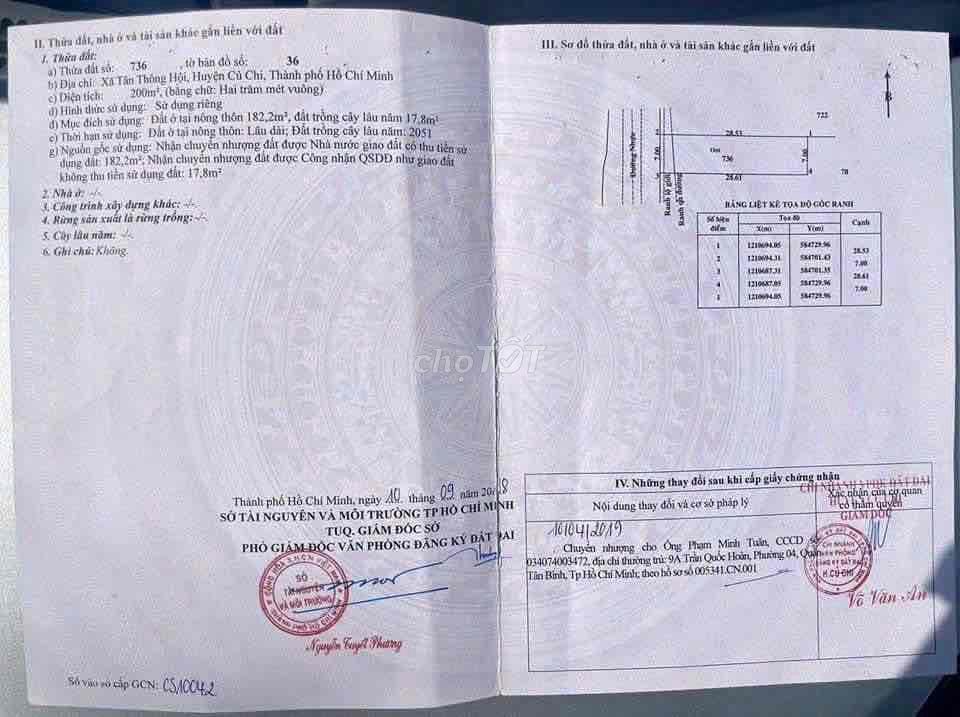 II. Thửa đất, nhà ở và tài sản khác gắn liền với đất
1. Thửa đất:
a) Thửa đất số: 736 , tờ bản đồ số: 36
b) Địa chỉ: Xã Tân Thông Hội, Huyện Củ Chi, Thành phố Hồ Chí Minh
c) Diện tích: 200m², (bằng chữ: Hai trăm mét vuông)
d) Hình thức sử dụng: Sử dụng riêng
đ) Mục đích sử dụng: Đất ở tại nông thôn 182,2m², đất trồng cây lâu năm 17,8m²
e) Thời hạn sử dụng: Đất ở tại nông thôn: Lâu dài; Đất trồng cây lâu năm: 2051
g) Nguồn gốc sử dụng: Nhận chuyển nhượng đất được Nhà nước giao đất có thu tiền sử
dụng đất: 182,2m²; Nhận chuyển nhượng đất được Công nhận QSDĐ như giao đất
không thu tiền sử dụng đất: 17,8m²
2. Nhà ở: -/-.
3. Công trình xây dựng khác: -/-.
4. Rừng sản xuất là rừng trồng: -/-.
5. Cây lâu năm: -/-.
6. Ghi chú: Không.
Thành phố Hồ Chí Minh, ngày 10 tháng 09 năm
SỞ TÀI NGUYÊN VÀ MÔI TRƯỜNG TP HỒ CHÍ MINH
TUQ. GIÁM ĐỐC SỞ
PHÓ GIÁM ĐỐC VĂN PHÒNG ĐĂNG KÝ ĐẤT ĐAI
SỞ
TÀI NGUYÊN
VÀ MÔI TRƯỜNG
Nguyễn Tuyết Phương
Số vào sổ cấp GCN: CS10042
chợTỐT
III. Sơ đồ thửa đất, nhà ở và tài sản khác gắn liền với đất
B
722
2 28.53 1
Đường Nhựa
7.00
736
7.00
3 28.61 4
78
Ranh lộ giới
Ranh qh đường
BẢNG LIỆT KÊ TỌA ĐỘ GÓC RANH
Số hiệu điểm Tọa độ Cạnh
X(m) Y(m)
1 1210694.05 584729.96
28.53
2 1210694.31 584701.43
7.00
3 1210687.31 584701.35
28.61
4 1210687.05 584729.96
7.00
1 1210694.05 584729.96
IV. Những thay đổi sau khi cấp giấy chứng nhận
Nội dung thay đổi và cơ sở pháp lý
Xác nhận của cơ quan
có thẩm quyền
GIÁM ĐỐC
10/04/2019
Chuyển nhượng cho Ông Phạm Minh Tuân, CCCD
034074003472, địa chỉ thường trú: 9A Trần Quốc Hoàn, Phường 04, Quận
Tân Bình, Tp Hồ Chí Minh; theo hồ sơ số 005341.CN.001
CHI NHÁNH
VĂN PHÒNG
ĐĂNG KÝ ĐẤT ĐAI
H.CỦ CHI
Võ Văn An